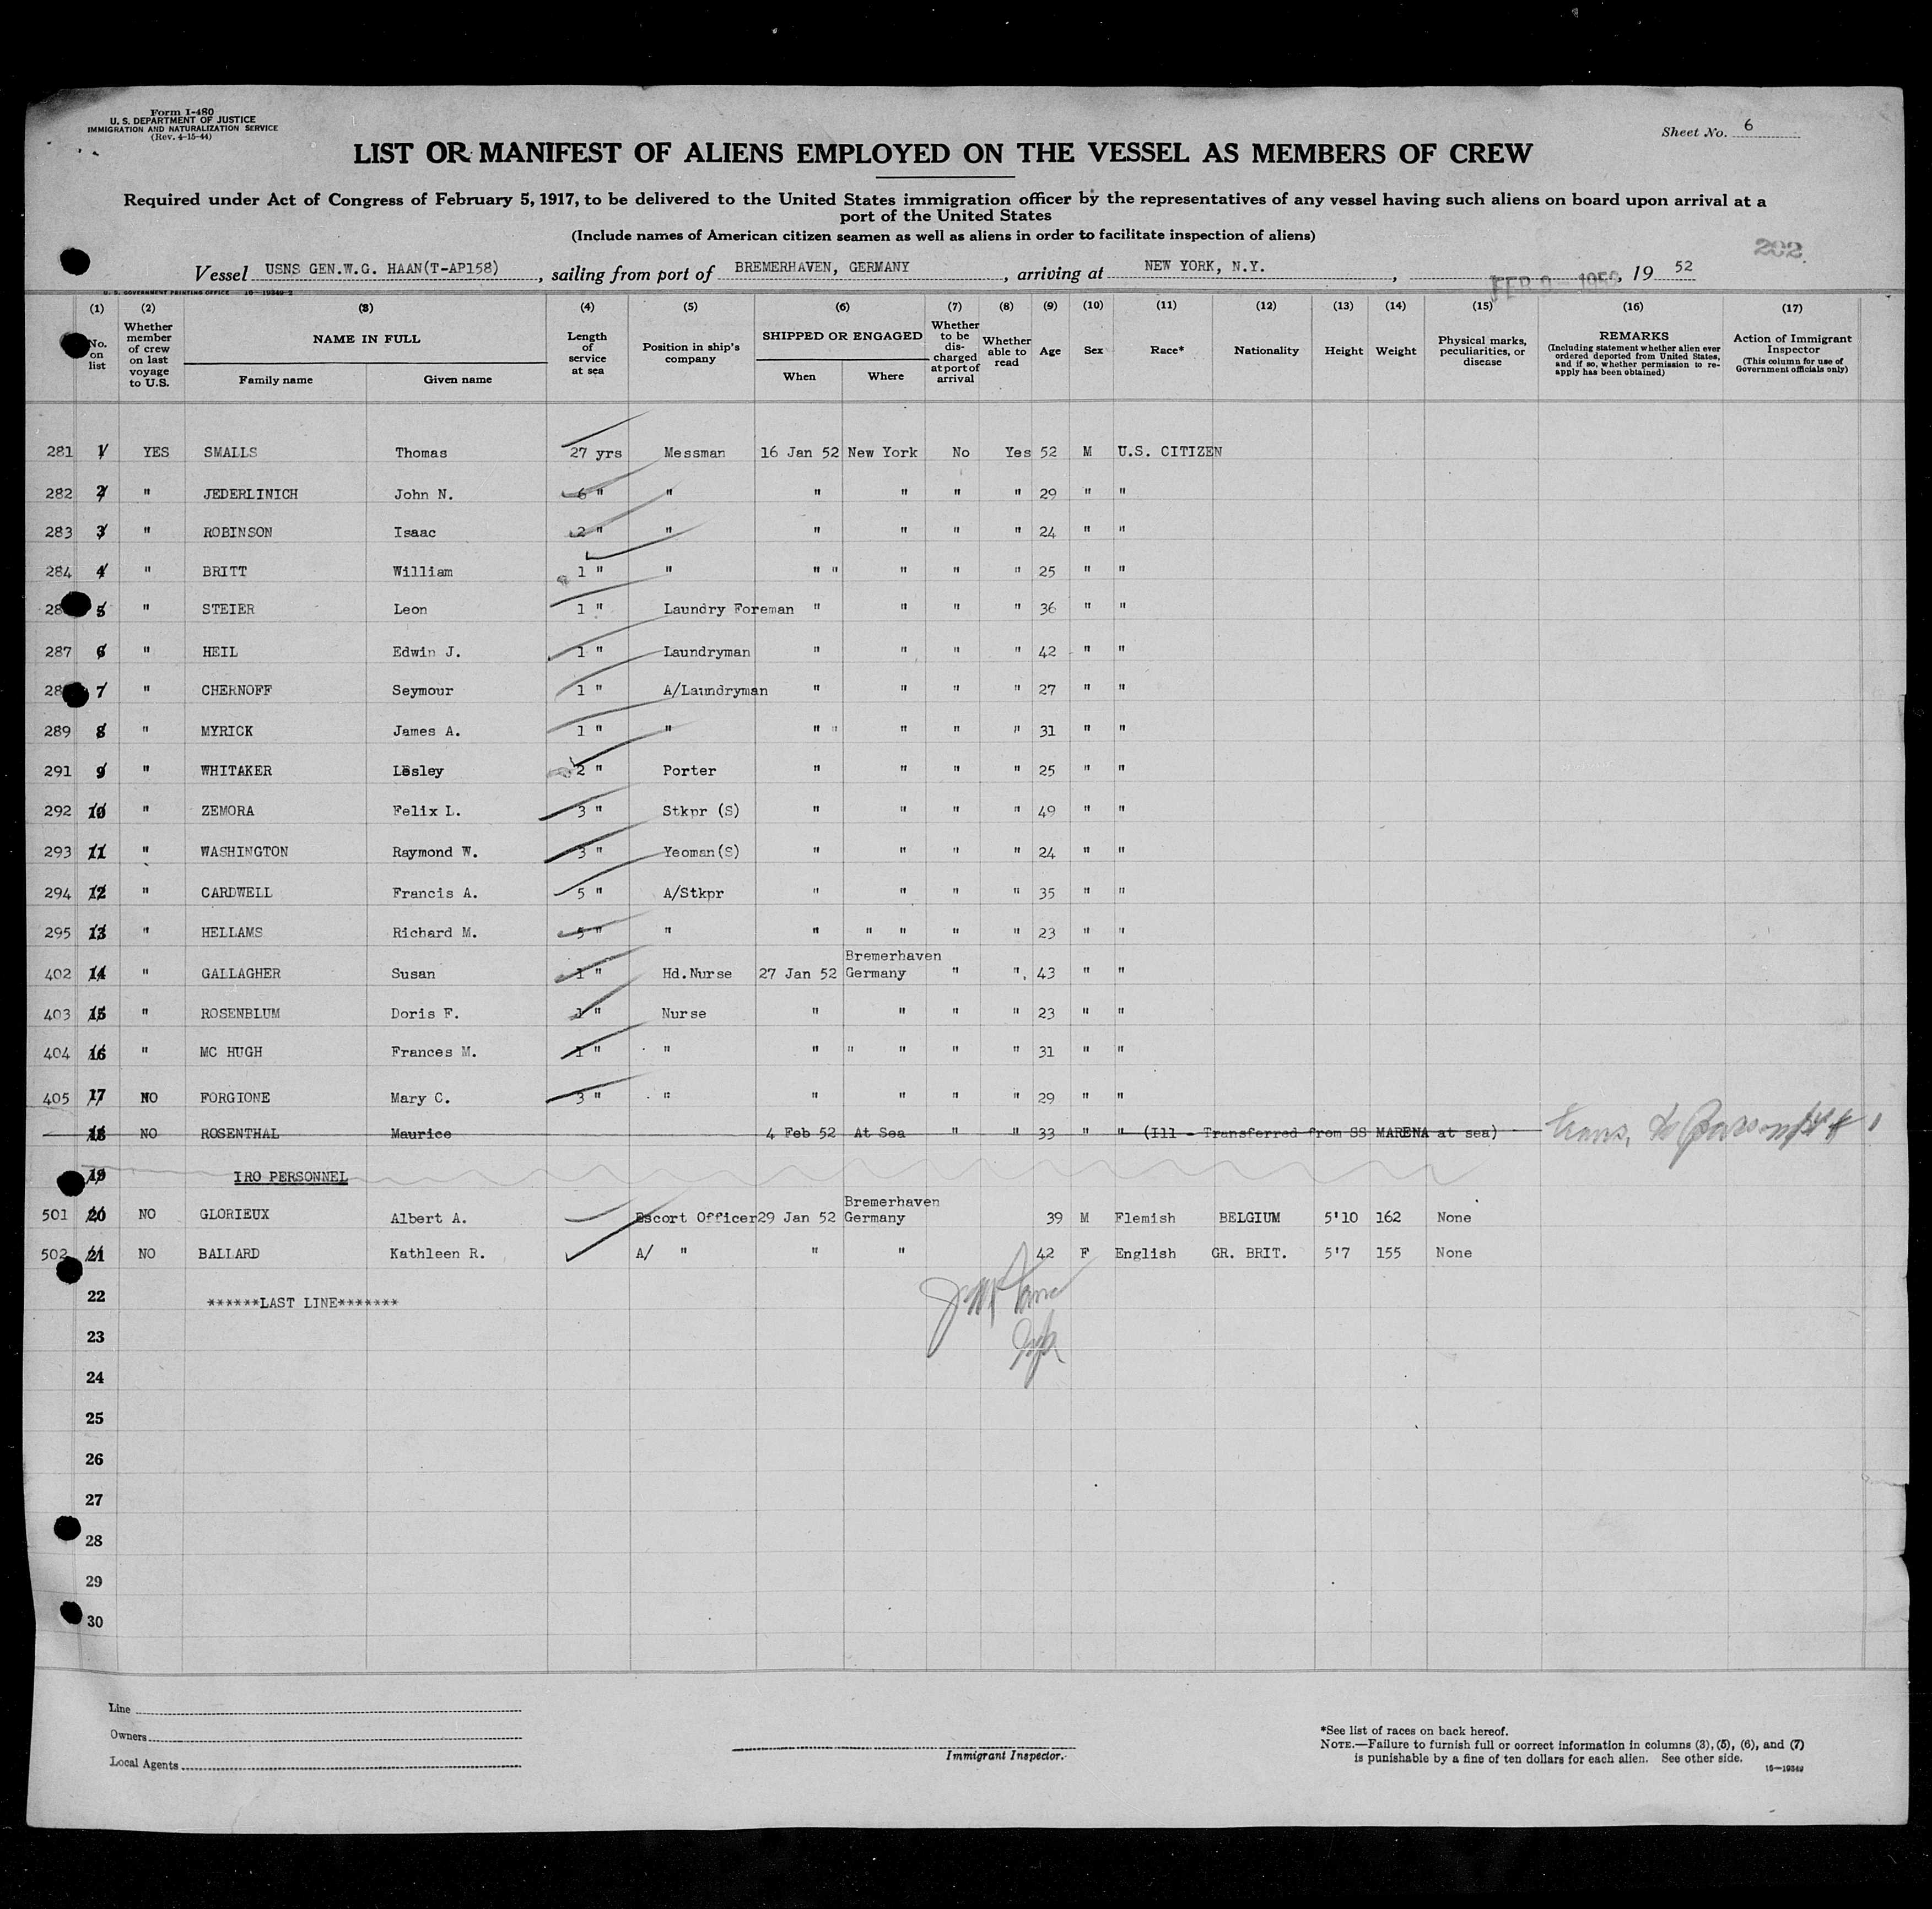 Form I-480
U. S. DEPARTMENT OF JUSTICE
IMMIGRATION AND NATURALIZATION SERVICE
(Rev. 4-15-44)
Sheet No. 6
LIST OR MANIFEST OF ALIENS EMPLOYED ON THE VESSEL AS MEMBERS OF CREW
Required under Act of Congress of February 5, 1917, to be delivered to the United States immigration officer by the representatives of any vessel having such aliens on board upon arrival at a
port of the United States
(Include names of American citizen seamen as well as aliens in order to facilitate inspection of aliens)
202
Vessel USNS GEN.W.G. HAAN(T-AP158), sailing from port of BREMERHAVEN, GERMANY, arriving at NEW YORK, N.Y., FEB 1952, 19 52
U. S. GOVERNMENT PRINTING OFFICE 16-19349-2
(1) No. on list
(2) Whether member of crew on last voyage to U.S.
(3) NAME IN FULL Family name Given name
(4) Length of service at sea
(5) Position in ship's company
(6) SHIPPED OR ENGAGED When Where
(7) Whether to be discharged at port of arrival
(8) Whether able to read
(9) Age
(10) Sex
(11) Race*
(12) Nationality
(13) Height
(14) Weight
(15) Physical marks, peculiarities, or disease
(16) REMARKS (Including statement whether alien ever ordered deported from United States, and if so, whether permission to re-apply has been obtained)
(17) Action of Immigrant Inspector (This column for use of Government officials only)
281 1 YES SMALLS Thomas 27 yrs Messman 16 Jan 52 New York No Yes 52 M U.S. CITIZEN
282 2 " JEDERLINICH John N. 6 " " " " " " 29 " "
283 3 " ROBINSON Isaac 2 " " " " " " 24 " "
284 4 " BRITT William 1 " " " " " " " 25 " "
28 5 " STEIER Leon 1 " Laundry Foreman " " " " 36 " "
287 6 " HEIL Edwin J. 1 " Laundryman " " " " 42 " "
28 7 " CHERNOFF Seymour 1 " A/Laundryman " " " " 27 " "
289 8 " MYRICK James A. 1 " " " " " " " 31 " "
291 9 " WHITAKER Lesley 2 " Porter " " " " 25 " "
292 10 " ZEMORA Felix L. 3 " Stkpr (S) " " " " 49 " "
293 11 " WASHINGTON Raymond W. 3 " Yeoman(S) " " " " 24 " "
294 12 " CARDWELL Francis A. 5 " A/Stkpr " " " " 35 " "
295 13 " HELLAMS Richard M. 5 " " " " " " " 23 " "
402 14 " GALLAGHER Susan 1 " Hd.Nurse 27 Jan 52 Bremerhaven Germany " " 43 " "
403 15 " ROSENBLUM Doris F. 1 " Nurse " " " " 23 " "
404 16 " MC HUGH Frances M. 1 " " " " " " " 31 " "
405 17 NO FORGIONE Mary C. 3 " " " " " " 29 " "
18 NO ROSENTHAL Maurice 4 Feb 52 At Sea " " 33 " " (Ill - Transferred from SS MARENA at sea) trans. to
19 IRO PERSONNEL
501 20 NO GLORIEUX Albert A. Escort Officer 29 Jan 52 Bremerhaven Germany 39 M Flemish BELGIUM 5'10 162 None
502 21 NO BALLARD Kathleen R. A/ " " " 42 F English GR. BRIT. 5'7 155 None
22 ******LAST LINE*******
23
24
25
26
27
28
29
30
Line
Owners
Local Agents
Immigrant Inspector.
*See list of races on back hereof.
NOTE.—Failure to furnish full or correct information in columns (3), (5), (6), and (7)
is punishable by a fine of ten dollars for each alien. See other side.
16—19349